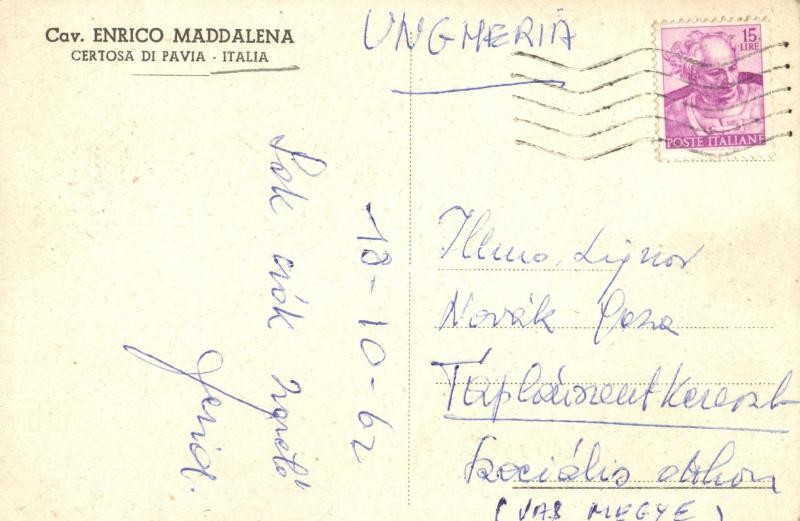 Cav. ENRICO MADDALENA
CERTOSA DI PAVIA - ITALIA
UNGHERIA
15
LIRE
POSTE ITALIANE
18-10-62
Sok csók
Illmo. Signor
Novák Géza
Táplánszentkereszt
Szociális otthon
(VAS MEGYE)